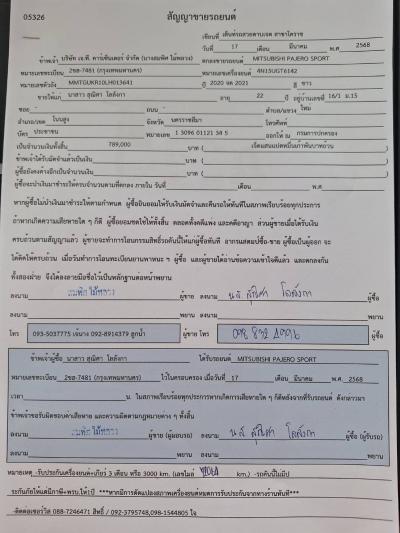 05326
สัญญาขายรถยนต์
เขียนที่ เต็นท์รถสวยตามเจต สาขาโคราช
วันที่ 17 เดือน มีนาคม พ.ศ 2568
ข้าพเจ้า บริษัท เจ.ที. คาร์เซ็นเตอร์ จำกัด (นางสมพิศ ไม้หลวง) ตกลงขายรถยนต์ MITSUBISHI PAJERO SPORT
หมายเลขทะเบียน 2ขส-7481 (กรุงเทพมหานคร) หมายเลขเครื่องยนต์ 4N15UGT6142
หมายเลขตัวถัง MMTGUKR10LH013641 ปี 2020 จด 2021 สี ขาว
ขายให้แก่ นางสาว สุณิศา โลลังกา อายุ 22 ปี อยู่บ้านเลขที่ 16/1 ม.15
ซอย - ถนน - ตำบล/แขวง ใหม่
อำเภอ/เขต โนนสูง จังหวัด นครราชสีมา โทรศัพท์
บัตร ประชาชน หมายเลข 1 3096 01121 34 5 ออกให้ ณ กรมการปกครอง
เป็นจำนวนเงินทั้งสิ้น 789,000 บาท (เจ็ดแสนแปดหมื่นเก้าพันบาทถ้วน)
ข้าพเจ้าได้รับมัดจำแล้วเป็นเงิน บาท ( )
ผู้ซื้อยังคงค้างอีกเป็นจำนวนเงิน บาท ( )
ผู้ซื้อจะนำเงินมาชำระให้ครบจำนวนตามที่ตกลง ภายใน วันที่ เดือน พ.ศ.
หากผู้ซื้อไม่นำเงินมาชำระให้ตามกำหนด ผู้ซื้อยินยอมให้ริบเงินมัดจำและคืนรถให้ทันทีในสภาพเรียบร้อยทุกประการ
ถ้าหากเกิดความเสียหายใด ๆ ก็ดี ผู้ซื้อยอมชดใช้ให้ทั้งสิ้น ตลอดทั้งคดีแพ่ง และคดีอาญา ส่วนผู้ขายเมื่อได้รับเงิน
ครบถ้วนตามสัญญาแล้ว ผู้ขายจะทำการโอนกรรมสิทธิ์รถคันนี้ให้แก่ผู้ซื้อทันที อากรแสตมป์ซื้อ-ขาย ผู้ซื้อเป็นผู้ออก จะ
ได้คิดให้ครบถ้วน เมื่อวันทำการโอนทะเบียนยานพาหนะ ๆ ผู้ซื้อ และผู้ขายได้อ่านข้อความเข้าใจดีแล้ว และตกลงกัน
ทั้งสองฝ่าย จึงได้ลงลายมือชื่อไว้เป็นหลักฐานต่อหน้าพยาน
ลงนาม สมพิศ ไม้หลวง ผู้ขาย ลงนาม น.ส. สุณิศา โลลังกา ผู้ซื้อ
ลงนาม พยาน ลงนาม พยาน
โทร 093-5037775 เจ๊นาง 092-8914379 ลูกน้ำ ผู้ขาย โทร ผู้ซื้อ
ข้าพเจ้าผู้ซื้อ นางสาว สุณิศา โลลังกา ได้รับรถยนต์ MITSUBISHI PAJERO SPORT
หมายเลขทะเบียน 2ขส-7481 (กรุงเทพมหานคร) ไว้ในครอบครอง เมื่อวันที่ 17 เดือน มีนาคม พ.ศ. 2568
เวลา น. ในสภาพเรียบร้อยทุกประการหากเกิดการเสียหายใด ๆ ก็ดีหลังจากที่รับรถยนต์ ดังกล่าวมา
ข้าพเจ้าขอรับผิดชอบค่าเสียหาย และความผิดตามกฎหมายต่าง ๆ ทั้งสิ้น
ลงนาม สมพิศ ไม้หลวง ผู้ขาย (ผู้มอบรถ) ลงนาม น.ส. สุณิศา โลลังกา ผู้ซื้อ (ผู้รับรถ)
ลงนาม พยาน ลงนาม พยาน
หมายเหตุ -รับประกันเครื่องยนต์+เกียร์ 3 เดือน หรือ 3000 km. (เลขไมล์ km.) -รถคันนี้ไม่มี
ระกันภัยให้แต่มีภาษี+พรบ.ให้1ปี ***หากมีการดัดแปลงสภาพเครื่องยนต์หมดการรับประกันจากทางร้านทันที***
-ติดต่อเซอร์วิส 088-7246471 สิทธิ์ / 092-3795748,098-1544805 ใจ